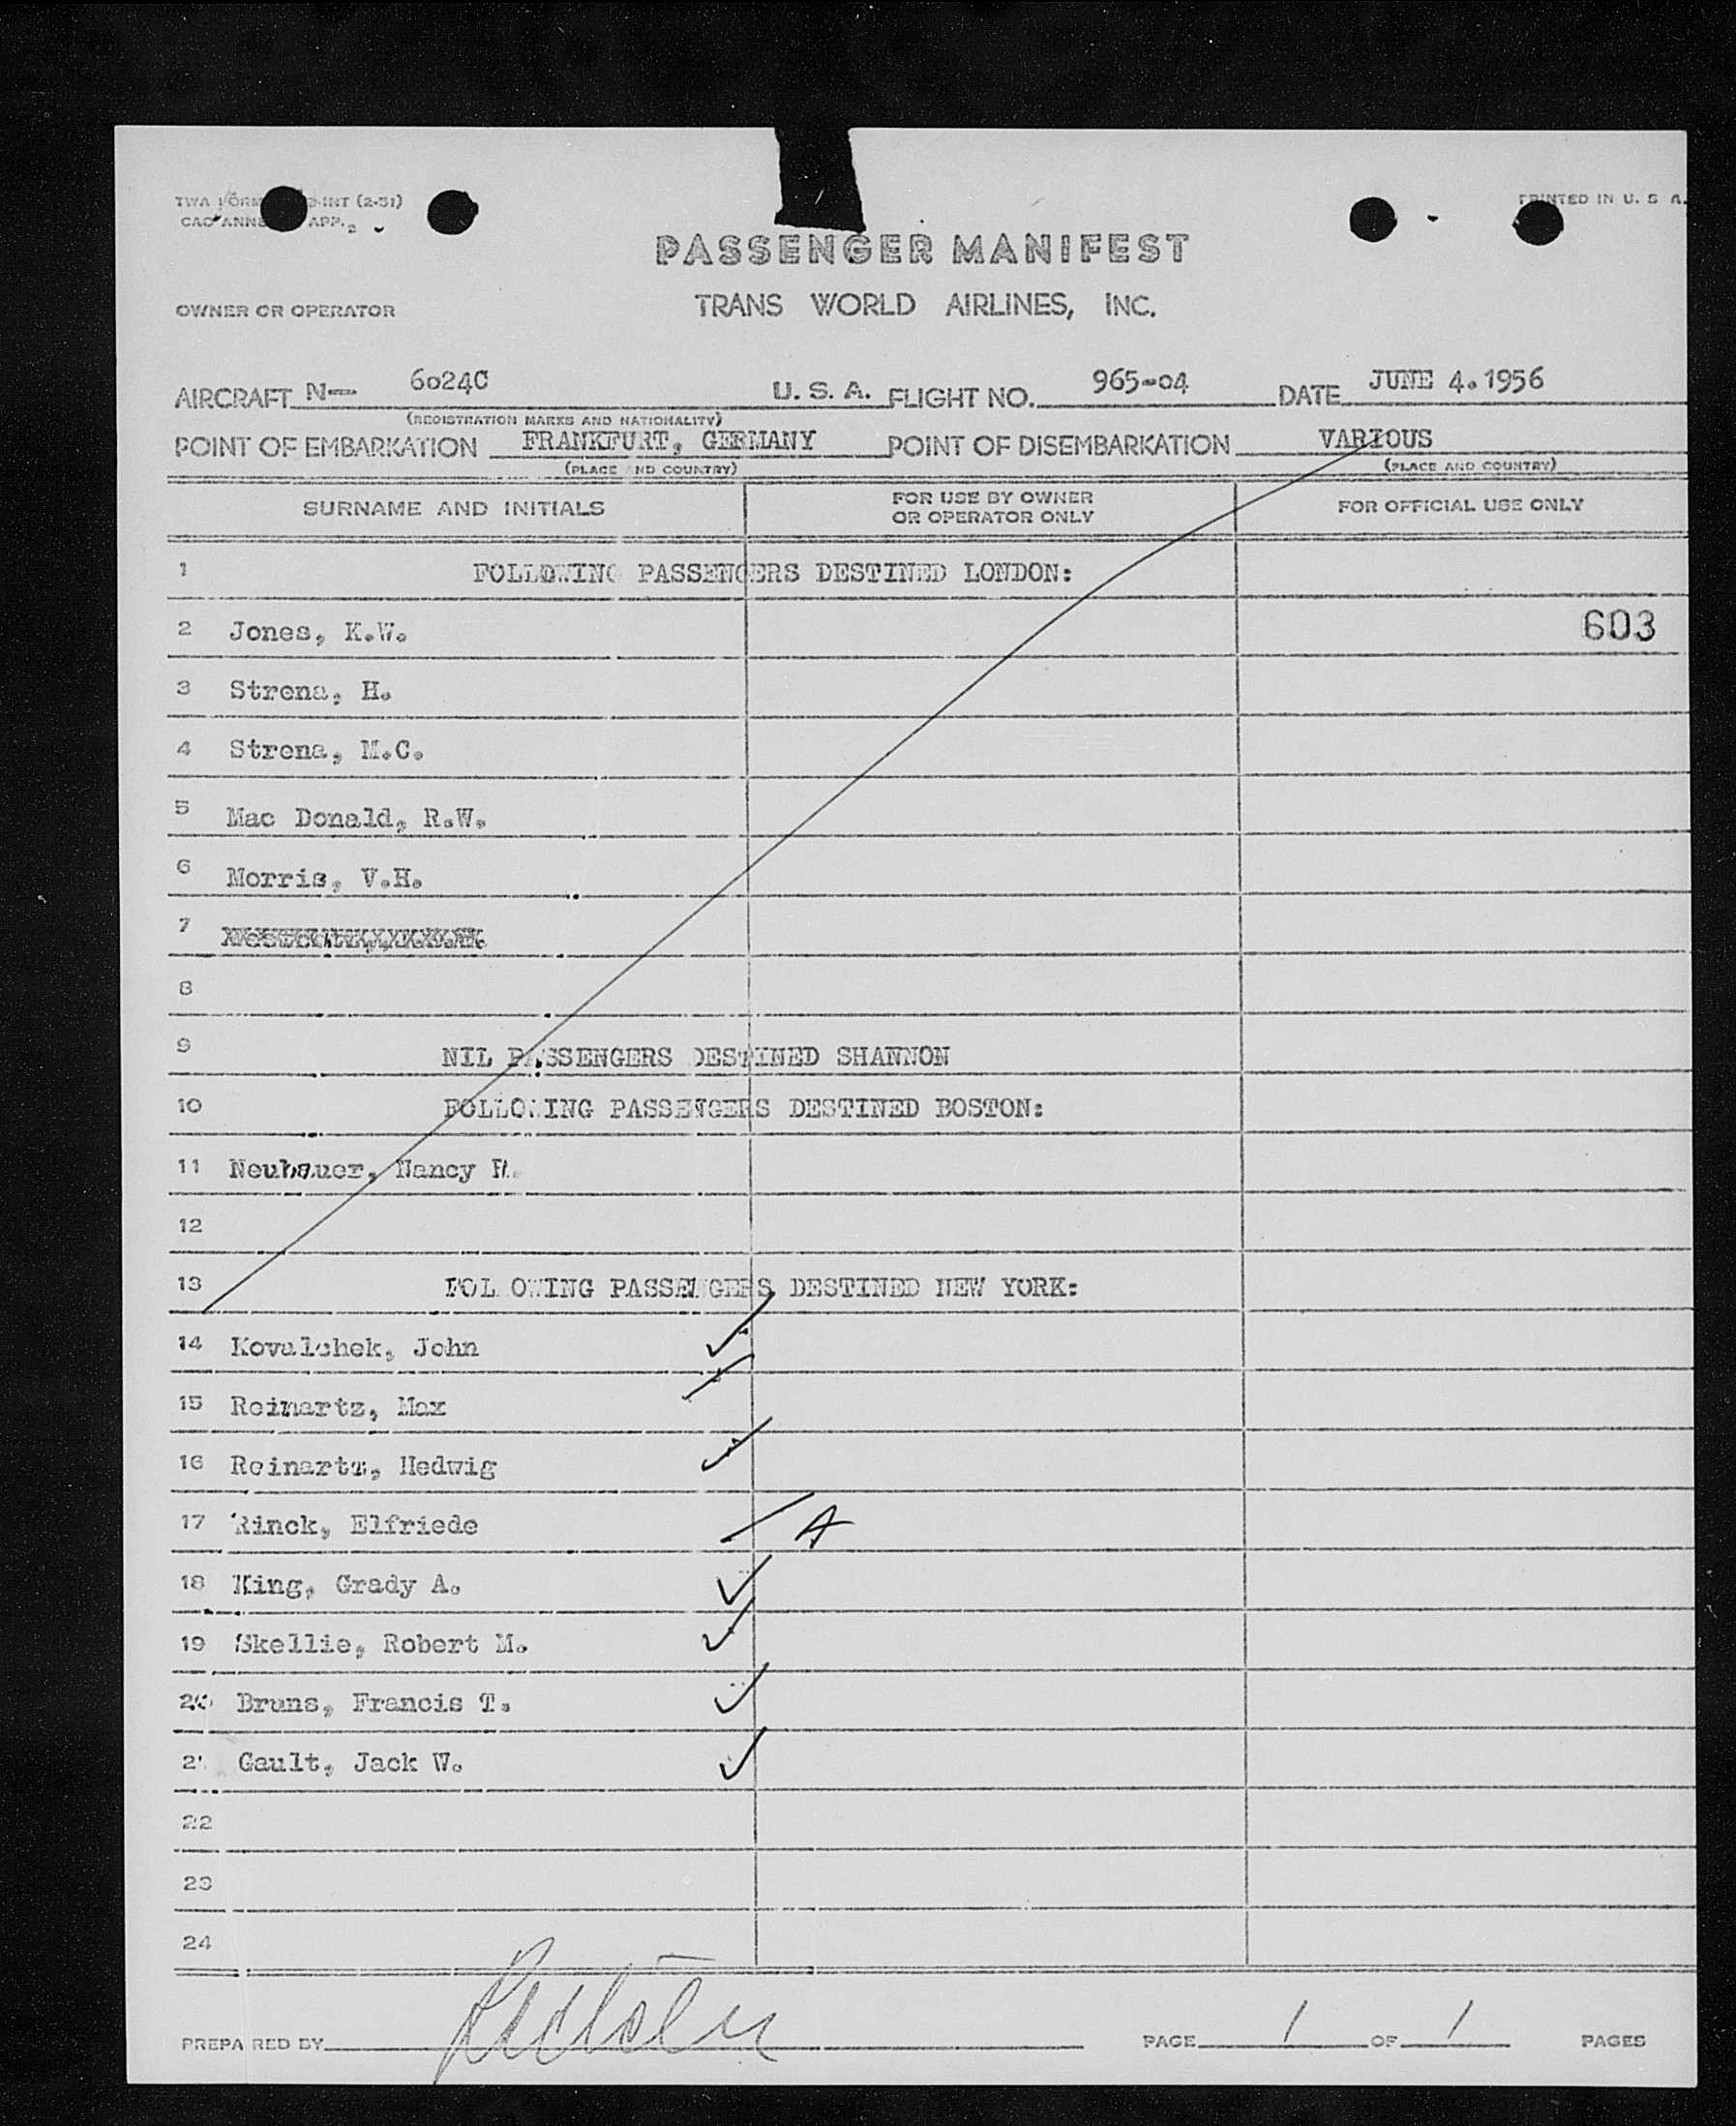 PRINTED IN U. S A.
PASSENGER MANIFEST
OWNER OR OPERATOR TRANS WORLD AIRLINES, INC.
AIRCRAFT N— 6024C U. S. A. FLIGHT NO. 965-04 DATE JUNE 4.1956
(REGISTRATION MARKS AND NATIONALITY)
POINT OF EMBARKATION FRANKFURT, GERMANY POINT OF DISEMBARKATION VARIOUS
(PLACE AND COUNTRY) (PLACE AND COUNTRY)
SURNAME AND INITIALS FOR USE BY OWNER OR OPERATOR ONLY FOR OFFICIAL USE ONLY
1 FOLLOWING PASSENGERS DESTINED LONDON:
2 Jones, K.W. 603
3 Strena, H.
4 Strena, M.C.
5 Mac Donald, R.W.
6 Morris, V.H.
7
8
9 NIL PASSENGERS DESTINED SHANNON
10 FOLLOWING PASSENGERS DESTINED BOSTON:
11 Neubauer, Nancy
12
13 FOLLOWING PASSENGERS DESTINED NEW YORK:
14 Kovalchek, John
15 Reinartz, Max
16 Reinartz, Hedwig
17 Rinck, Elfriede A
18 King, Grady A.
19 Skellie, Robert M.
20 Bruns, Francis T.
21 Gault, Jack W.
22
23
24
PREPARED BY PAGE 1 OF 1 PAGES